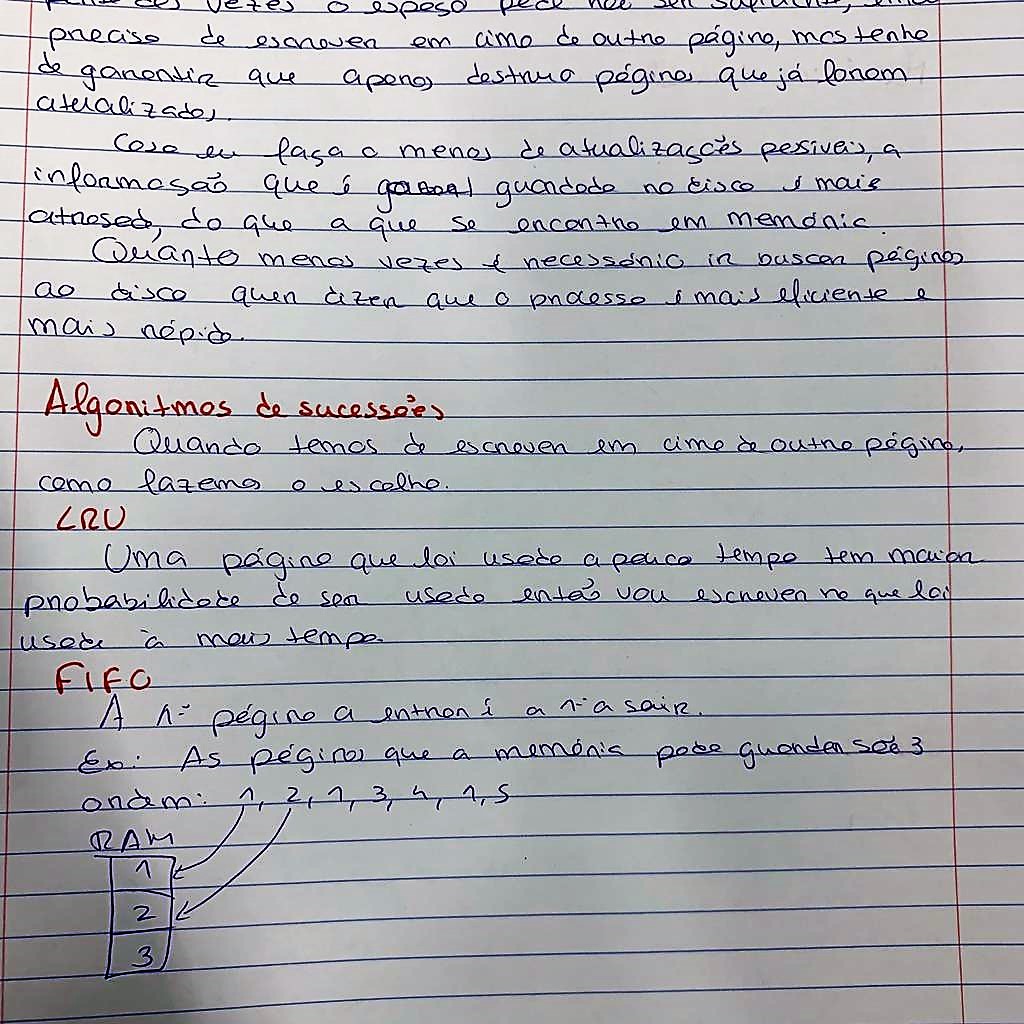 vezes o espaço pode não ser suficiente,
preciso de escrever em cima de outra página, mas tenho
de garantir que apenas destruo páginas que já foram
atualizadas.
Caso eu faça o menos de atualizações possíveis, a
informação que é guardada no disco é mais
atrasada, do que a que se encontra em memória.
Quanto menos vezes é necessário ir buscar páginas
ao disco quer dizer que o processo é mais eficiente e
mais rápido.
Algoritmos de sucessões
Quando temos de escrever em cima de outra página,
como fazemos a escolha.
LRU
Uma página que foi usada a pouco tempo tem maior
probabilidade de ser usada então vou escrever na que foi
usada à mais tempo.
FIFO
A 1ª página a entrar é a 1ª a sair.
Ex: As páginas que a memória pode guardar são 3
ordem: 1, 2, 1, 3, 4, 1, 5
RAM
1
2
3